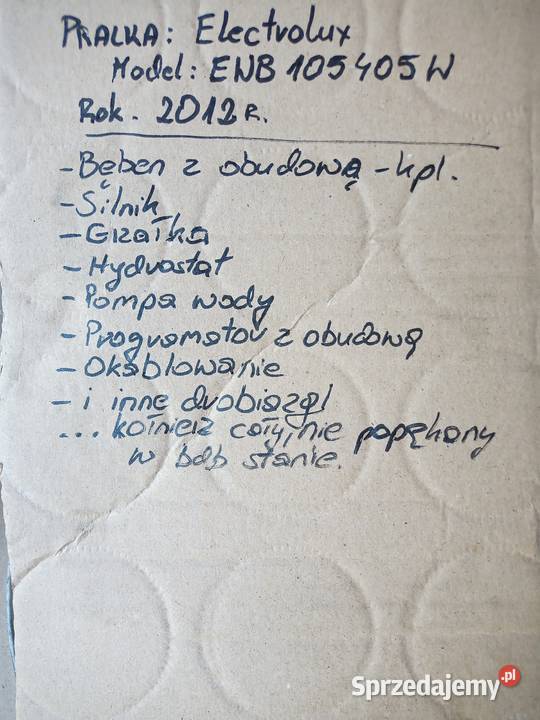 PRALKA: Electrolux
Model: ENB 105405W
Rok. 2012 R.
- Bęben z obudową - kpl.
- Silnik
- Grzałka
- Hydrostat
- Pompa wody
- Programator z obudową
- Okablowanie
- i inne drobiazgi
... kołnierz cały, nie popękany
w bdb stanie.
Sprzedajemy.pl